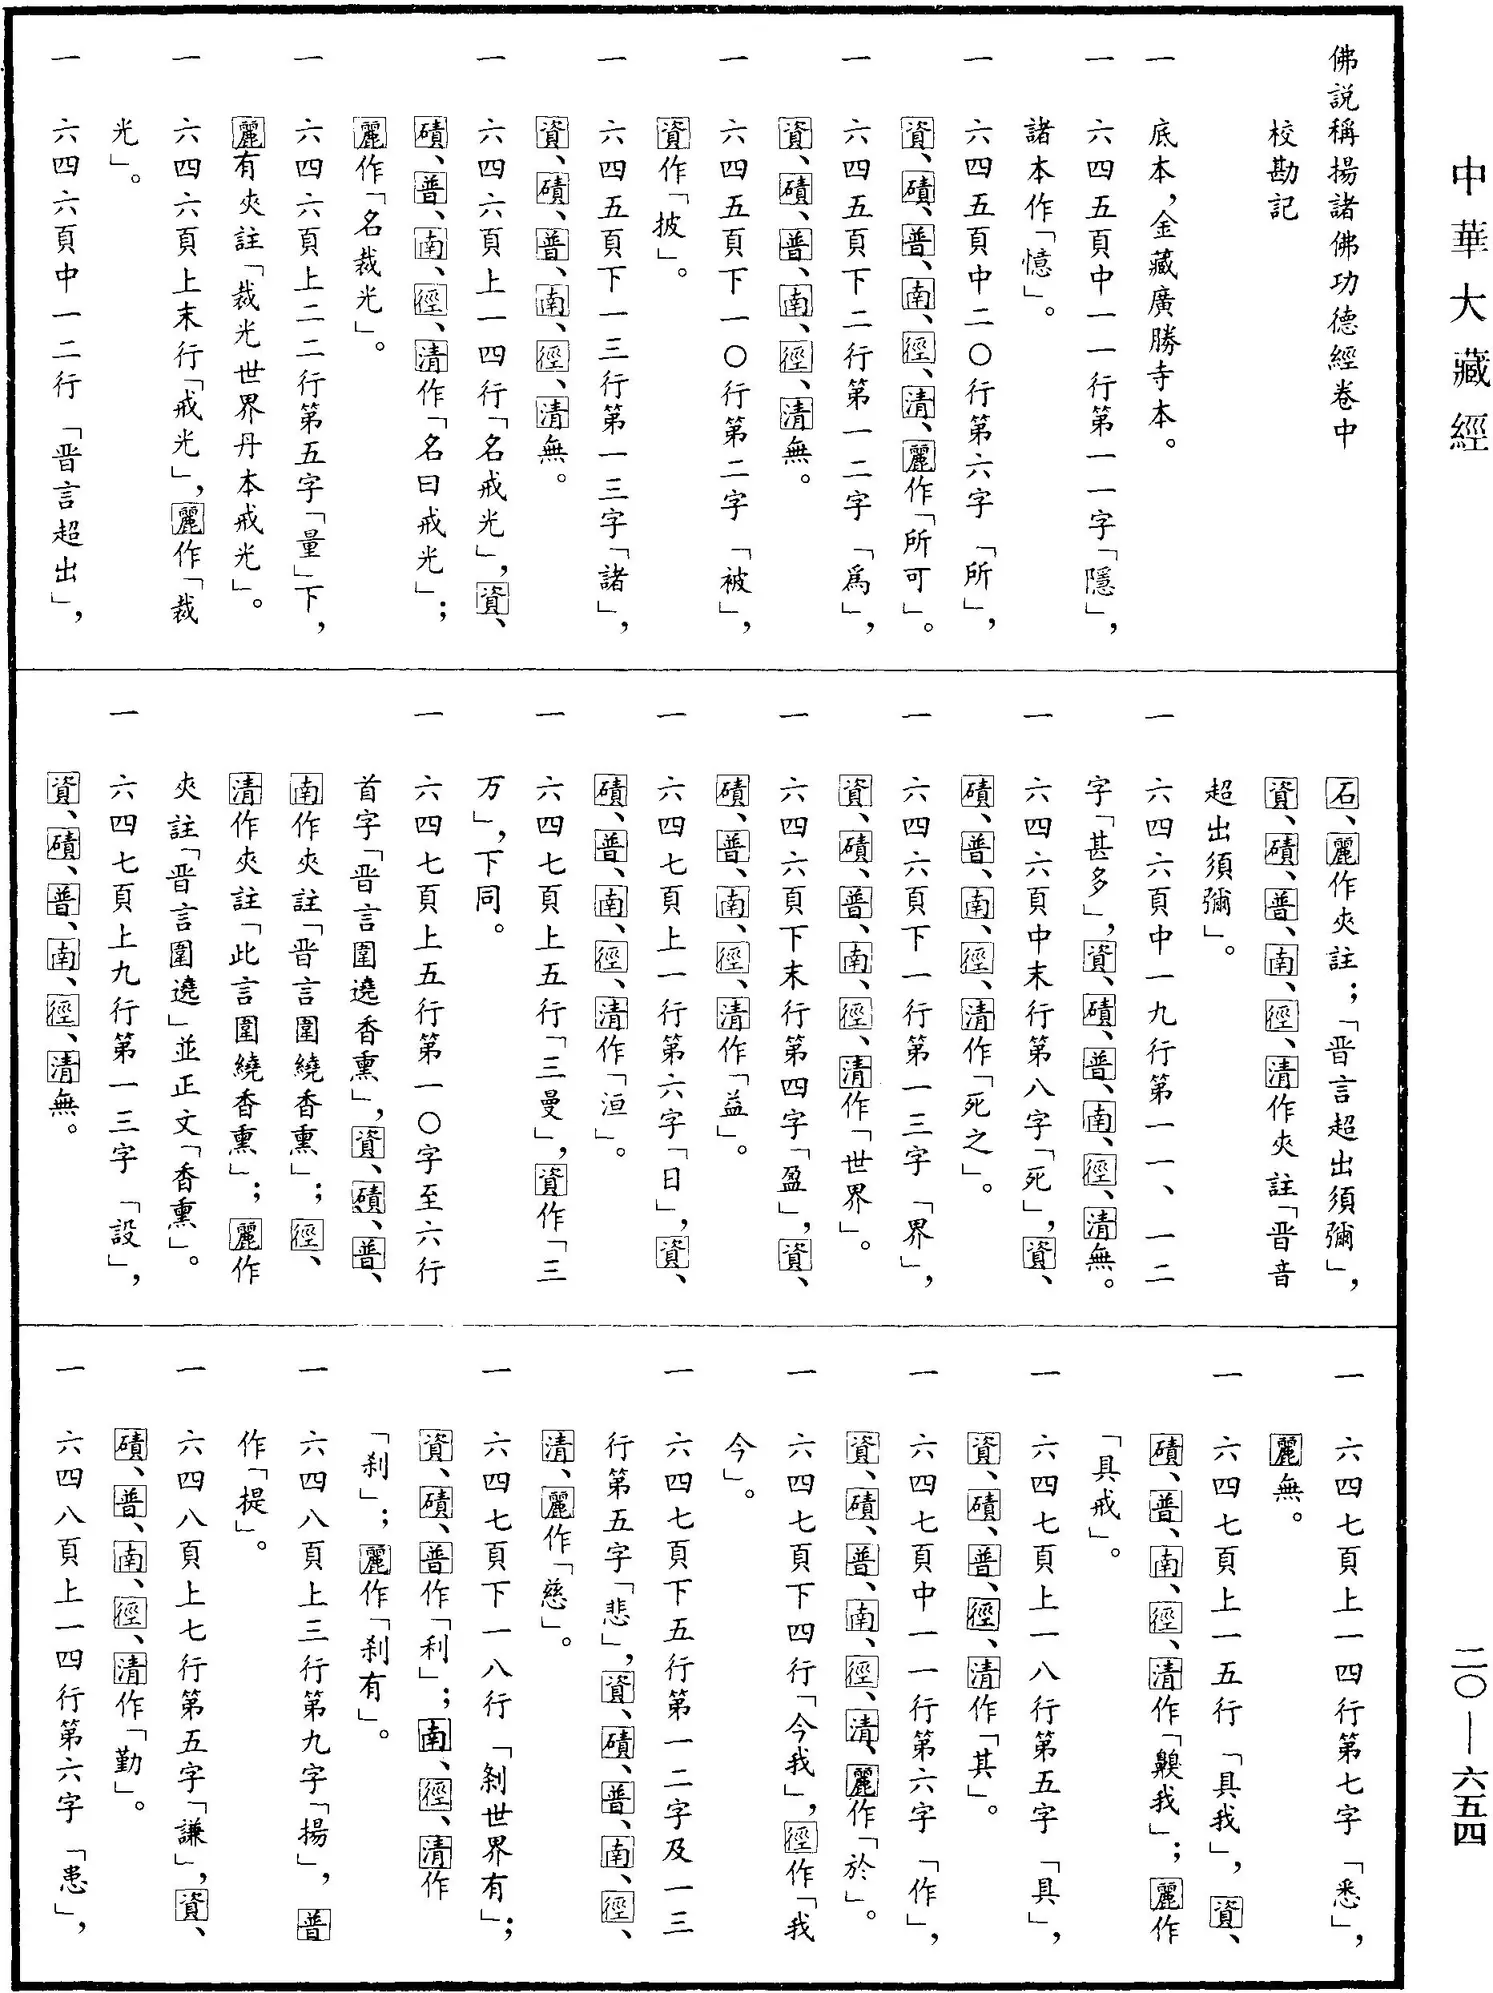 中華大藏經
二〇—六五四
佛說稱揚諸佛功德經卷中
校勘記
一　底本，金藏廣勝寺本。
一　六四五頁中一一行第一一字「隱」，
諸本作「憶」。
一　六四五頁中二〇行第六字「所」，
資、磧、普、南、徑、清、麗作「所可」。
一　六四五頁下二行第一二字「爲」，
資、磧、普、南、徑、清無。
一　六四五頁下一〇行第二字「被」，
資作「披」。
一　六四五頁下一三行第一三字「諸」，
資、磧、普、南、徑、清無。
一　六四六頁上一四行「名戒光」，資、
磧、普、南、徑、清作「名曰戒光」；
麗作「名裁光」。
一　六四六頁上二二行第五字「量」下，
麗有夾註「裁光世界丹本戒光」。
一　六四六頁上末行「戒光」，麗作「裁
光」。
一　六四六頁中一二行「晋言超出」，
石、麗作夾註；「晋言超出須彌」，
資、磧、普、南、徑、清作夾註「晋音
超出須彌」。
一　六四六頁中一九行第一一、一二
字「甚多」，資、磧、普、南、徑、清無。
一　六四六頁中末行第八字「死」，資、
磧、普、南、徑、清作「死之」。
一　六四六頁下一行第一三字「界」，
資、磧、普、南、徑、清作「世界」。
一　六四六頁下末行第四字「盈」，資、
磧、普、南、徑、清作「益」。
一　六四七頁上一行第六字「日」，資、
磧、普、南、徑、清作「洹」。
一　六四七頁上五行「三曼」，資作「三
万」，下同。
一　六四七頁上五行第一〇字至六行
首字「晋言圍遶香熏」，資、磧、普、
南作夾註「晋言圍繞香熏」；徑、
清作夾註「此言圍繞香熏」；麗作
夾註「晋言圍遶」並正文「香熏」。
一　六四七頁上九行第一三字「設」，
資、磧、普、南、徑、清無。
一　六四七頁上一四行第七字「悉」，
麗無。
一　六四七頁上一五行「具我」，資、
磧、普、南、徑、清作「齅我」；麗作
「具戒」。
一　六四七頁上一八行第五字「具」，
資、磧、普、徑、清作「其」。
一　六四七頁中一一行第六字「作」，
資、磧、普、南、徑、清、麗作「於」。
一　六四七頁下四行「今我」，徑作「我
今」。
一　六四七頁下五行第一二字及一三
行第五字「悲」，資、磧、普、南、徑、
清、麗作「慈」。
一　六四七頁下一八行「剎世界有」；
資、磧、普作「利」；南、徑、清作
「剎」；麗作「剎有」。
一　六四八頁上三行第九字「揚」，普
作「提」。
一　六四八頁上七行第五字「謙」，資、
磧、普、南、徑、清作「勤」。
一　六四八頁上一四行第六字「患」，